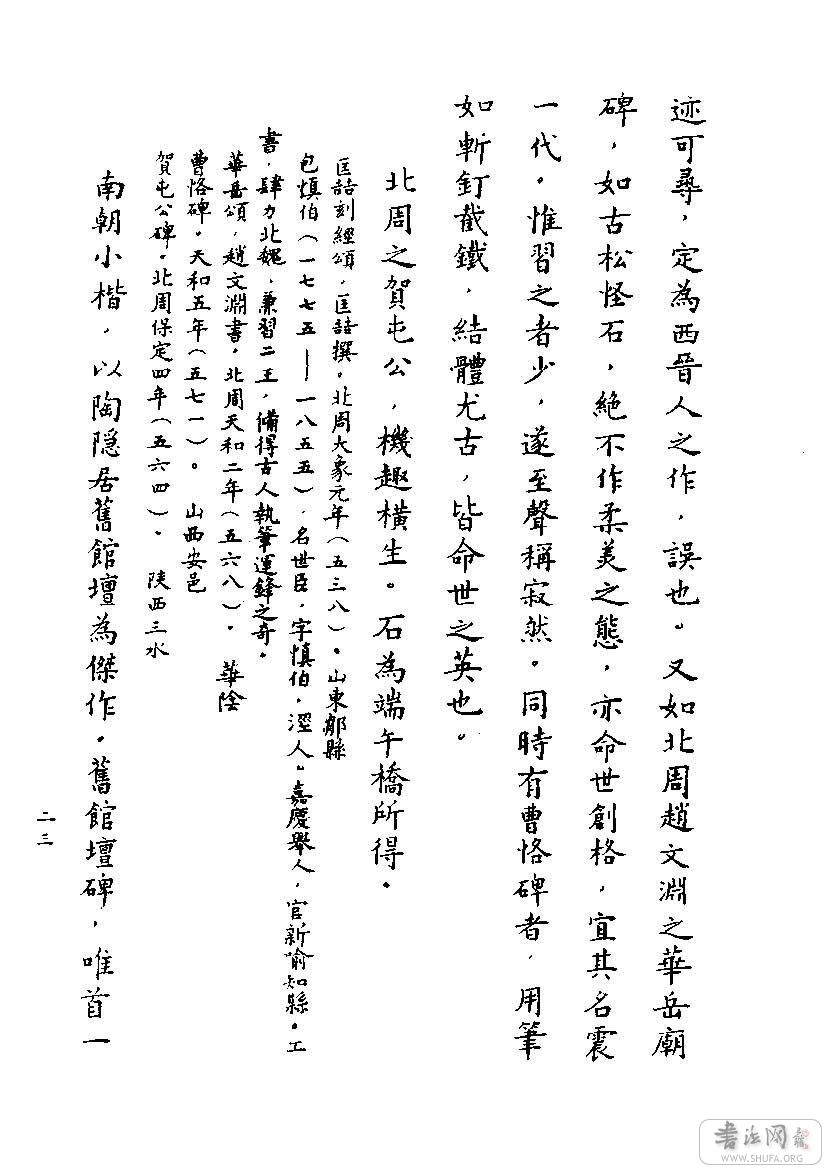 迹可尋，定為西晉人之作，誤也。又如北周趙文淵之華岳廟
碑，如古松怪石，絕不作柔美之態，亦命世創格，宜其名震
一代。惟習之者少，遂至聲稱寂然。同時有曹恪碑者，用筆
如斬釘截鐵，結體尤古，皆命世之英也。
北周之賀屯公，機趣橫生。石為端午橋所得。
匡喆刻經頌，匡喆撰。北周大象元年（五三八）。山東鄒縣
包慎伯（一七七五——一八五五），名世臣，字慎伯，涇人。嘉慶舉人，官新喻知縣。工
書，肆力北魏，兼習二王，備得古人執筆運鋒之奇。
華岳頌，趙文淵書。北周天和二年（五六八）。華陰
曹恪碑。天和五年（五七一）。山西安邑
賀屯公碑。北周保定四年（五六四）。陝西三水
南朝小楷，以陶隱居舊館壇為傑作。舊館壇碑，唯首一
二三
書法网
WWW.SHUFA.ORG